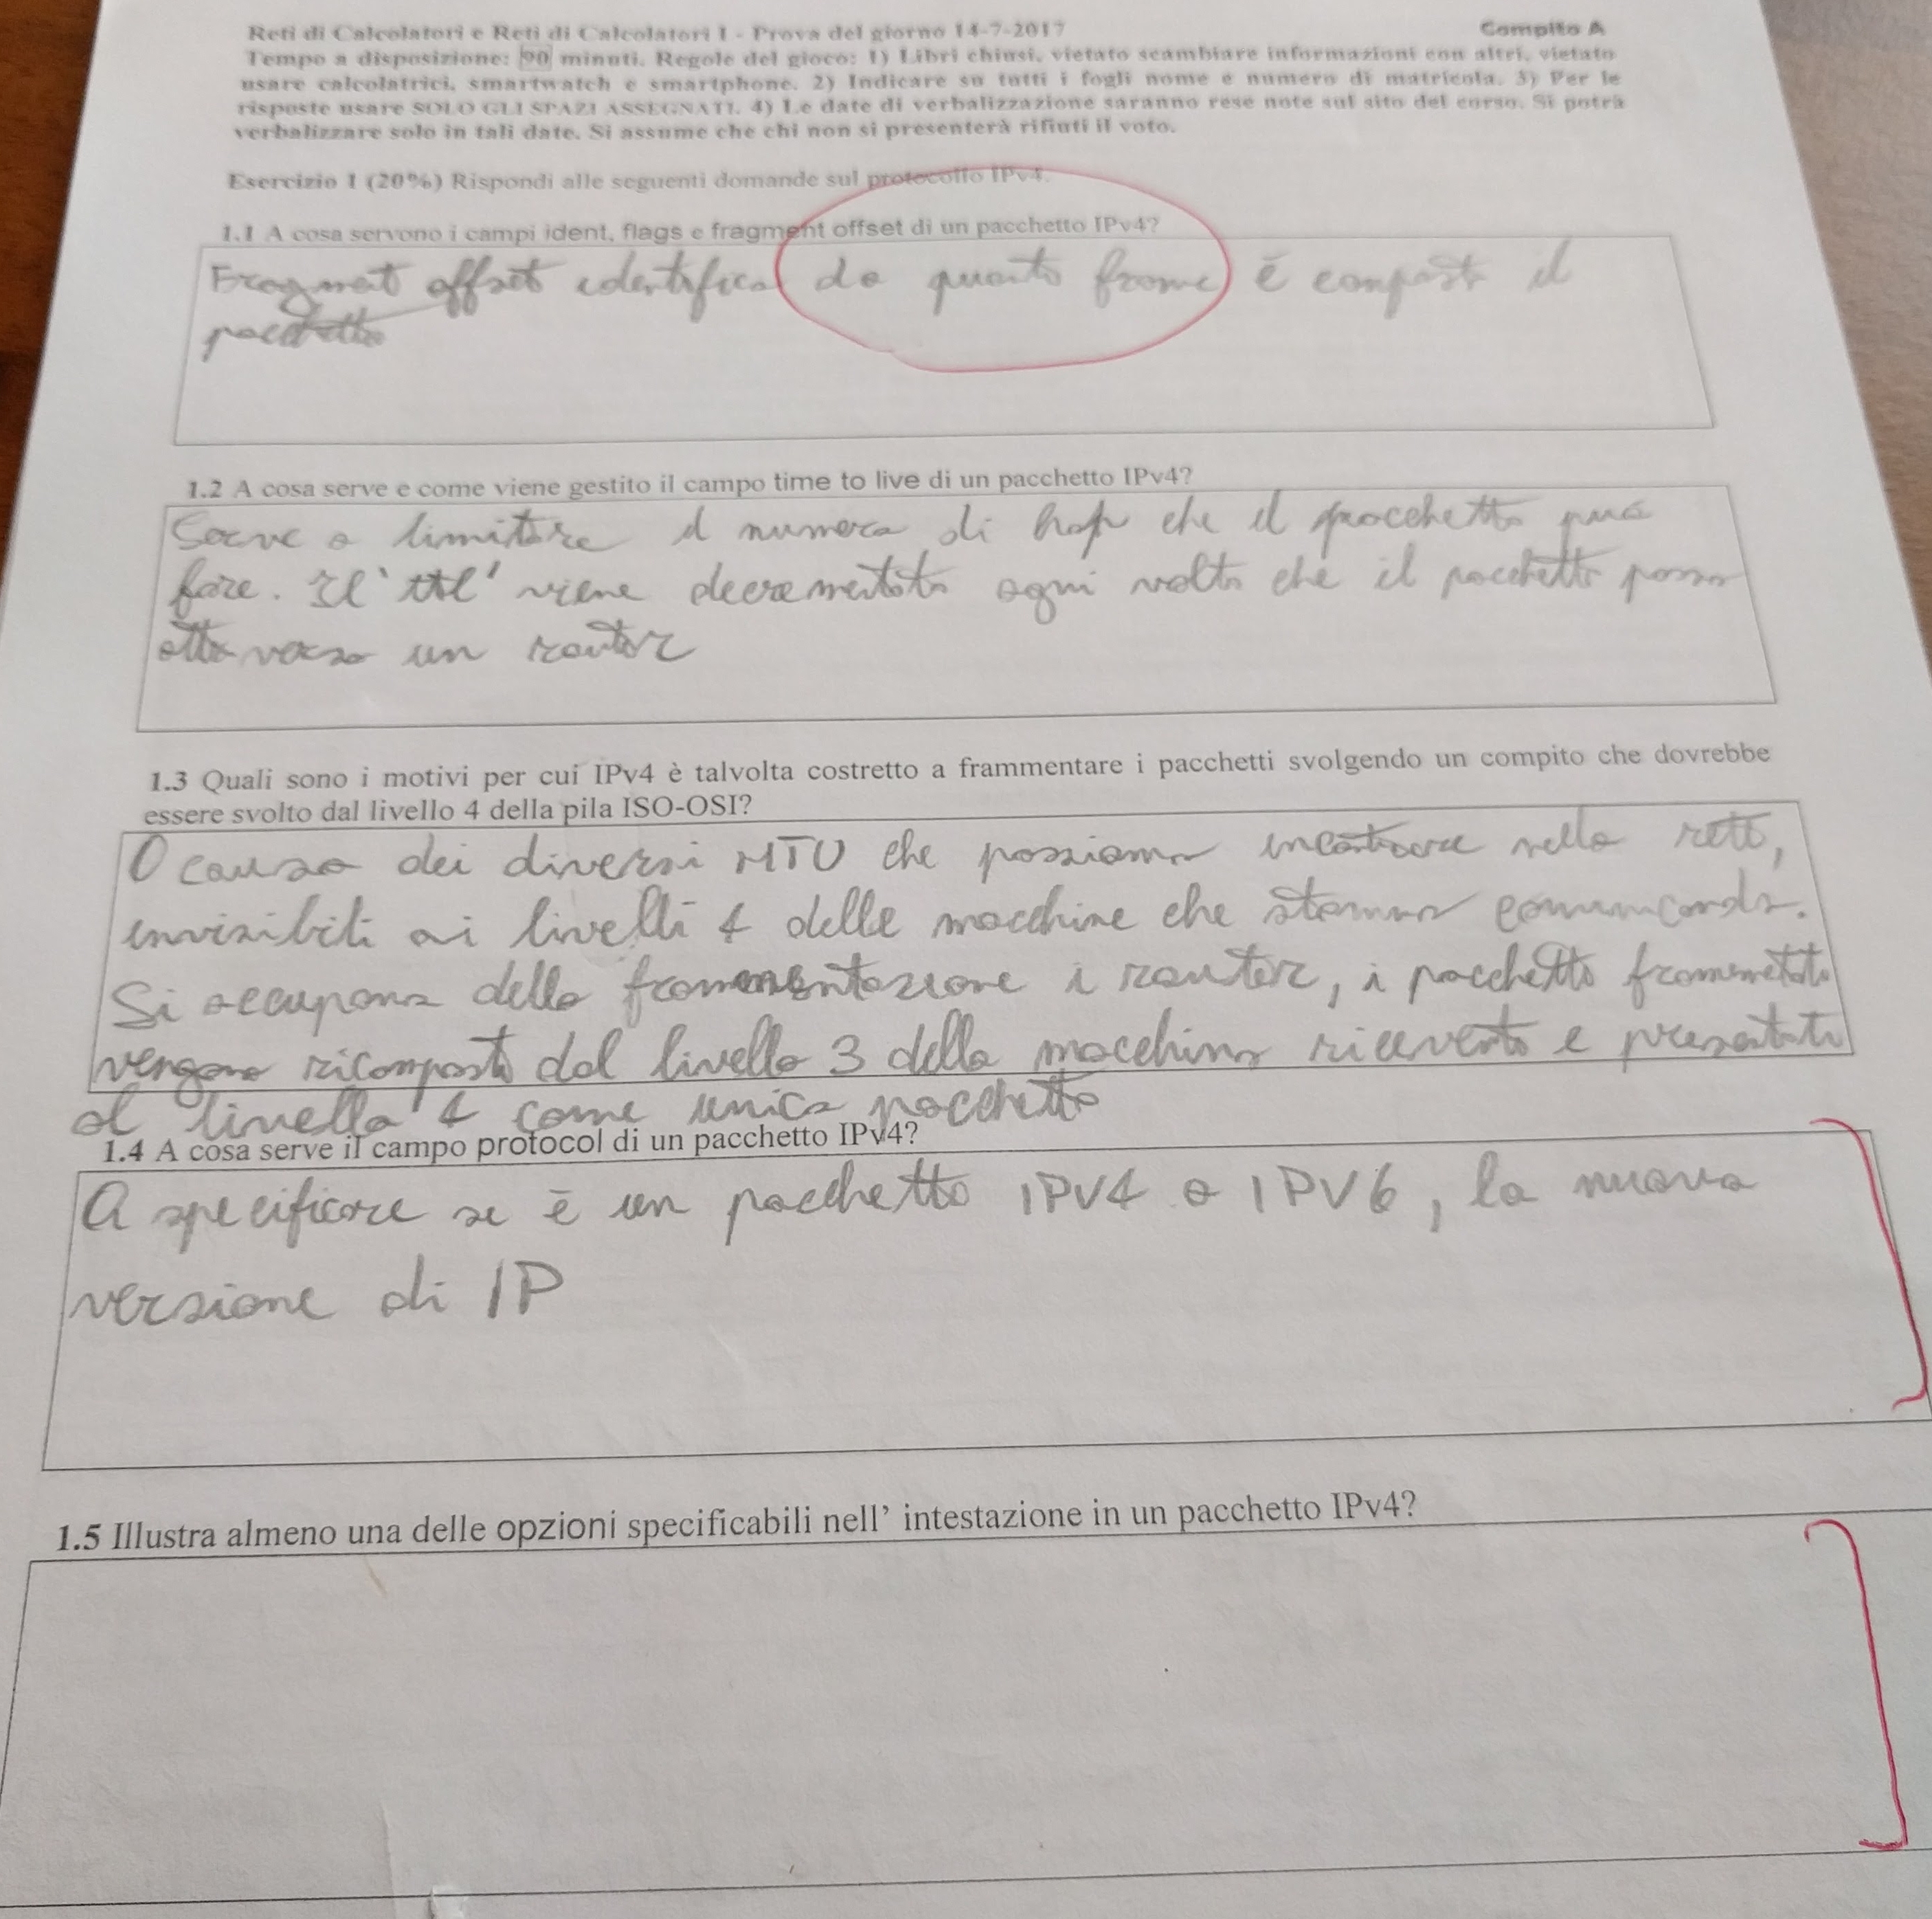 Reti di Calcolatori e Reti di Calcolatori I - Prova del giorno 14-7-2017 Compito A
Tempo a disposizione: 90 minuti. Regole del gioco: 1) Libri chiusi, vietato scambiare informazioni con altri, vietato
usare calcolatrici, smartwatch e smartphone. 2) Indicare su tutti i fogli nome e numero di matricola. 3) Per le
risposte usare SOLO GLI SPAZI ASSEGNATI. 4) Le date di verbalizzazione saranno rese note sul sito del corso. Si potrà
verbalizzare solo in tali date. Si assume che chi non si presenterà rifiuti il voto.
Esercizio 1 (20%) Rispondi alle seguenti domande sul protocollo IPv4.
1.1 A cosa servono i campi ident, flags e fragment offset di un pacchetto IPv4?
Fragment offset identifica da quanto frame è composto il
pacchetto
1.2 A cosa serve e come viene gestito il campo time to live di un pacchetto IPv4?
Serve a limitare il numero di hop che il pacchetto può
fare. Il 'ttl' viene decrementato ogni volta che il pacchetto passa
attraverso un router
1.3 Quali sono i motivi per cui IPv4 è talvolta costretto a frammentare i pacchetti svolgendo un compito che dovrebbe
essere svolto dal livello 4 della pila ISO-OSI?
A causa dei diversi MTU che possiamo incontrare nella rete,
invisibili ai livelli 4 delle macchine che stanno comunicando.
Si occupano della frammentazione i router, i pacchetti frammentati
vengono ricomposti dal livello 3 della macchina ricevente e presentati
al livello 4 come unico pacchetto
1.4 A cosa serve il campo protocol di un pacchetto IPv4?
A specificare se è un pacchetto IPV4 o IPV6, la nuova
versione di IP
1.5 Illustra almeno una delle opzioni specificabili nell' intestazione in un pacchetto IPv4?